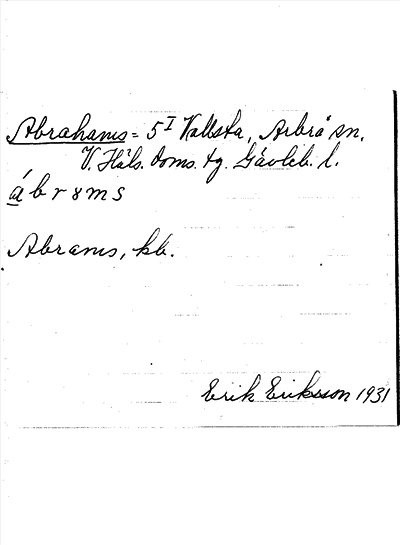 Abrahams = 5 I Vallsta, Arbrå sn.
V. Häls. doms. tg. Gävleb. l.
á b r 8 m s
Abrams, kb.
Erik Eriksson 1931